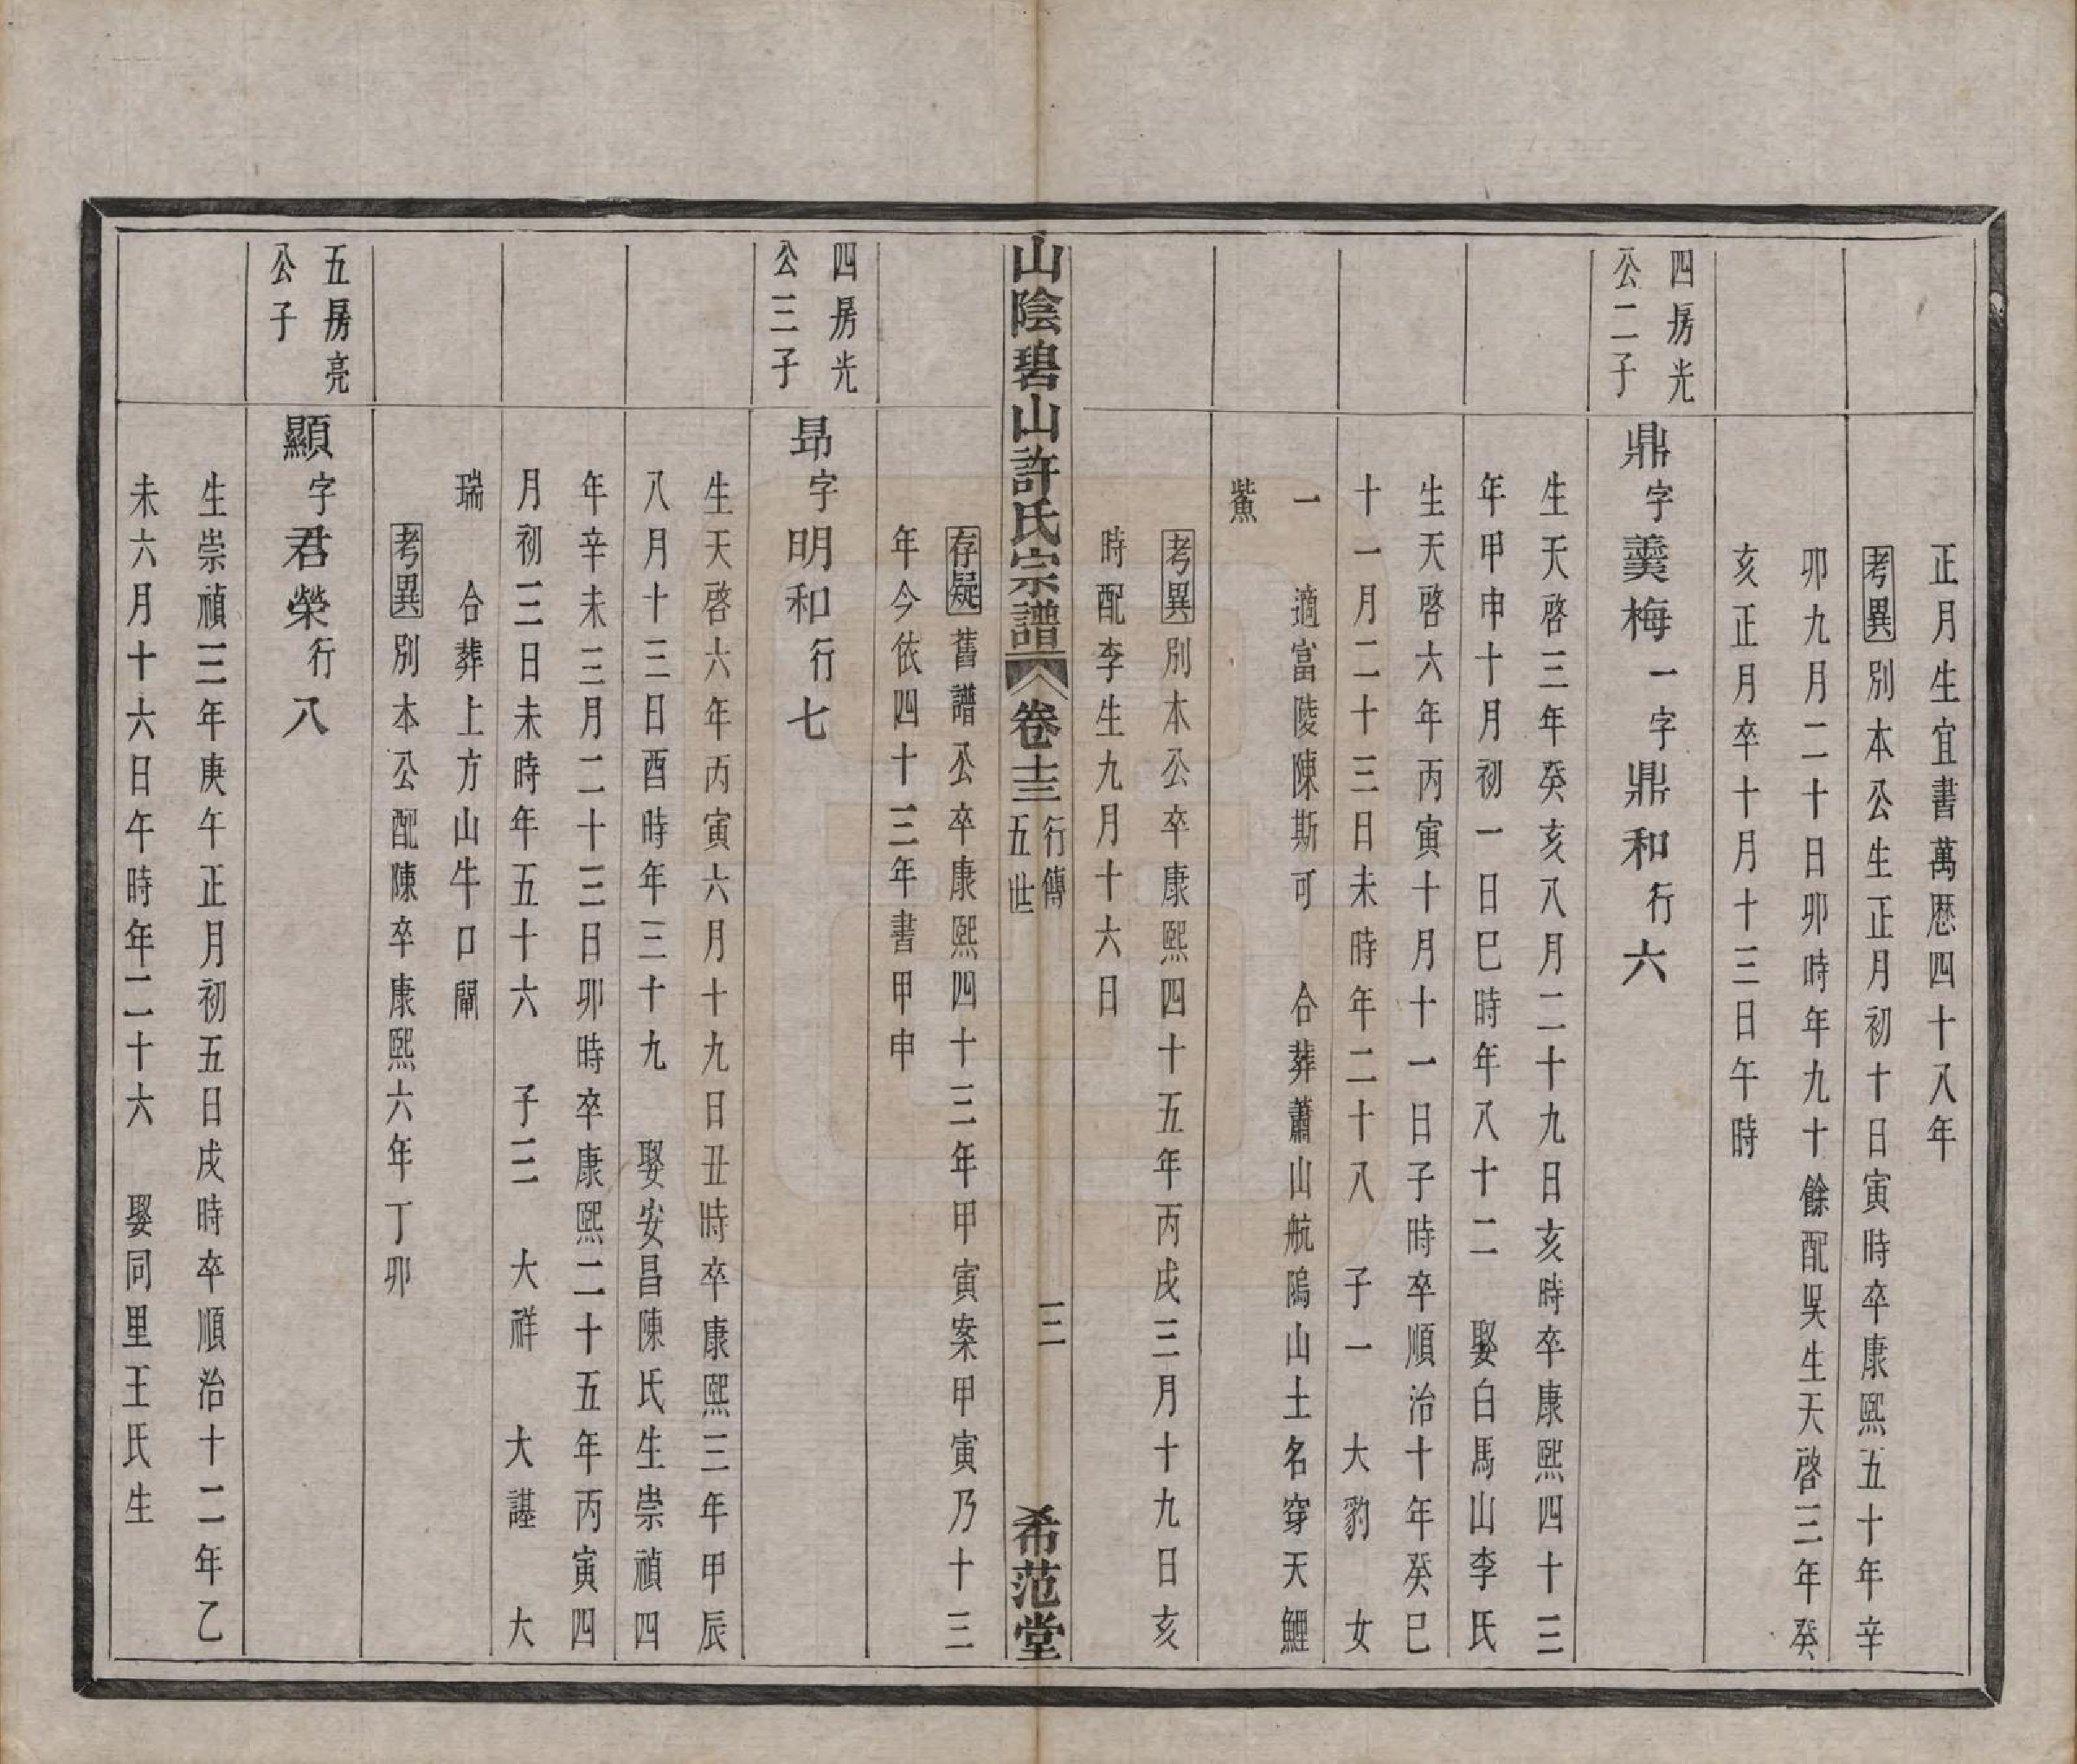 正月生宜書萬歷四十八年
考異別本公生正月初十日寅時卒康熙五十年辛
卯九月二十日卯時年九十餘配吳生天啓三年癸
亥正月卒十月十三日午時
四房光
公二子
鼎字羹梅一字鼎和行六
生天啓三年癸亥八月二十九日亥時卒康熙四十三
年甲申十月初一日巳時年八十二　娶白馬山李氏
生天啓六年丙寅十月十一日子時卒順治十年癸巳
十一月二十三日未時年二十八　子一　大豹　女
一　適富陵陳斯可　合葬蕭山航塢山土名穿天鯉
鯗
考異別本公卒康熙四十五年丙戌三月十九日亥
時配李生九月十六日
山陰碧山許氏宗譜　卷十三　行傳
五世
三
希范堂
存疑舊譜公卒康熙四十三年甲寅案甲寅乃十三
年今依四十三年書甲申
四房光
公三子
昂字明和行七
生天啓六年丙寅六月十九日丑時卒康熙三年甲辰
八月十三日酉時年三十九　娶安昌陳氏生崇禎四
年辛未三月二十三日卯時卒康熙二十五年丙寅四
月初三日未時年五十六　子三　大祥　大諶　大
瑞　合葬上方山牛口閘
考異別本公配陳卒康熙六年丁卯
五房亮
公子
顯字君榮行八
生崇禎三年庚午正月初五日戌時卒順治十二年乙
未六月十六日午時年二十六　娶同里王氏生